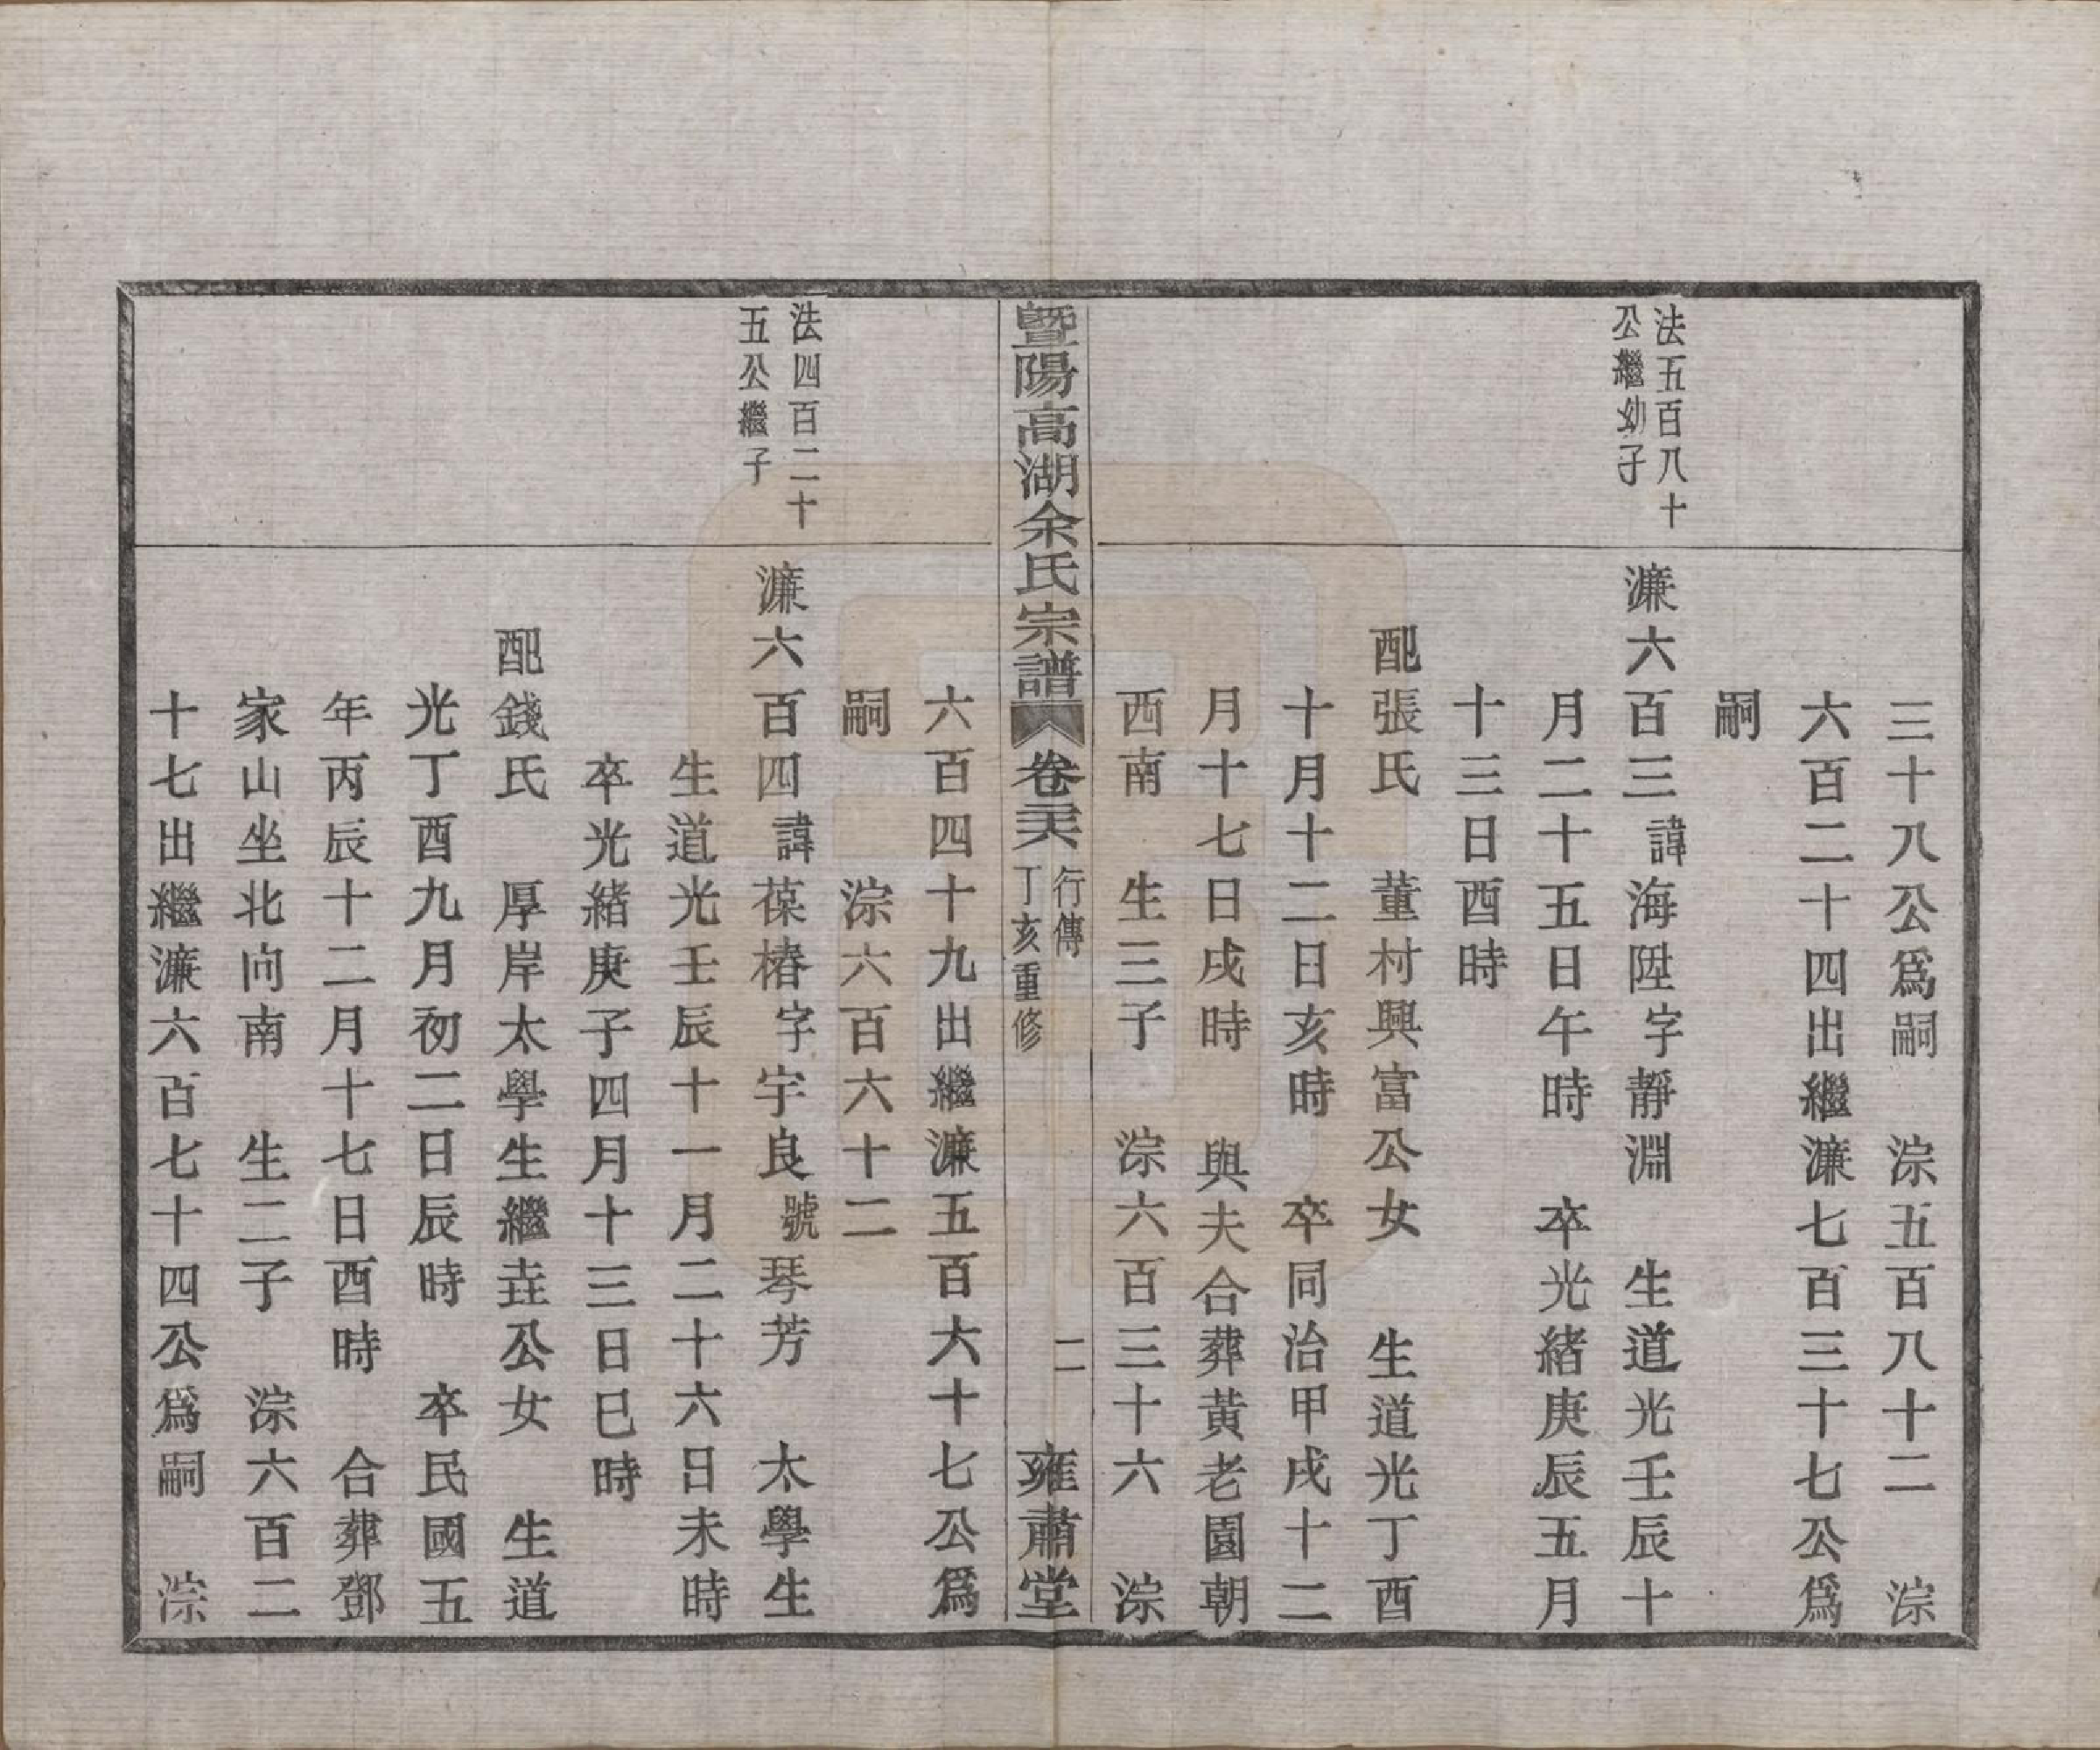 三十八公爲嗣　淙五百八十二　淙
六百二十四出繼濂七百三十七公爲
嗣
法五百八十
公繼幼子
濂六百三諱海陞字靜淵　生道光壬辰十
月二十五日午時　卒光緒庚辰五月
十三日酉時
配張氏　董村興富公女　生道光丁酉
十月十二日亥時　卒同治甲戌十二
月十七日戌時　與夫合葬黃老園朝
西南　生三子　淙六百三十六　淙
暨陽高湖余氏宗譜
卷三六
行傳
丁亥重修
二
雍肅堂
六百四十九出繼濂五百六十七公爲
嗣　淙六百六十二
法四百二十
五公繼子
濂六百四諱葆椿字宇良號琴芳　太學生
生道光壬辰十一月二十六日未時
卒光緒庚子四月十三日巳時
配錢氏　厚岸太學生繼垚公女　生道
光丁酉九月初二日辰時　卒民國五
年丙辰十二月十七日酉時　合葬鄧
家山坐北向南　生二子　淙六百二
十七出繼濂六百七十四公爲嗣　淙